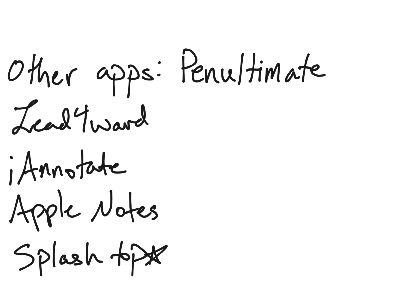 Other apps: Penultimate
Lead4ward
iAnnotate
Apple Notes
Splash top☆